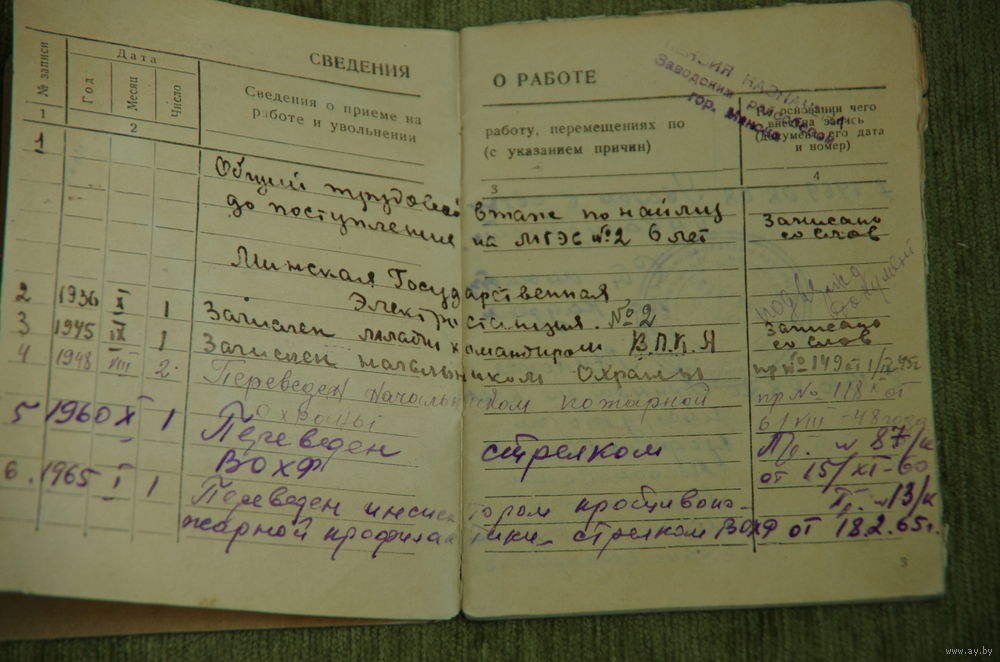 СВЕДЕНИЯ О РАБОТЕ
№ записи
Дата
Год
Месяц
Число
Сведения о приеме на работу, перемещениях по
работе и увольнении (с указанием причин)
На основании чего
внесена запись
(документ, его дата
и номер)
1 2 3 4
НАЗНАЧЕНА
Заводским райсобесом
гор. Минска
1
Общий трудовой стаж по найму
до поступление на МГЭС №2 6 лет Записано
со слов
Минская Государственная
Электростанция. №2
2 1936 X 1 Зачислен младш командиром В.П.К.Я Записано
со слов
3 1945 IX 1 Зачислен начальником Охраны пр №149 от 1/IX 45г
4 1948 VIII 2 Переведен Начальником пожарной пр № 118 к от
Охраны 6/VIII-48 года
5 1960 XI 1 Переведен стрелком Пр. № 87/к
ВОХР от 15/XI-60
6. 1965 I 1 Переведен инспектором противопо- Пр. №13/к
жарной профилактики- стрелком ВОХР от 18.2.65г.
3
www.ay.by